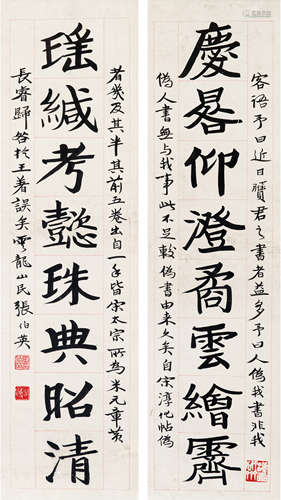 客語予曰近日贗君之書者益多予曰人偽我書非我
慶晷仰澄矞雲繪霽
偽人書無与我事此不足較偽書由来久矣自宋淳化帖偽
者幾及其半其前五卷出自一手皆宋太宗所為米元章黄
瑤緘考懿珠典昭清
長睿歸咎於王著誤矣雲龍山民張伯英